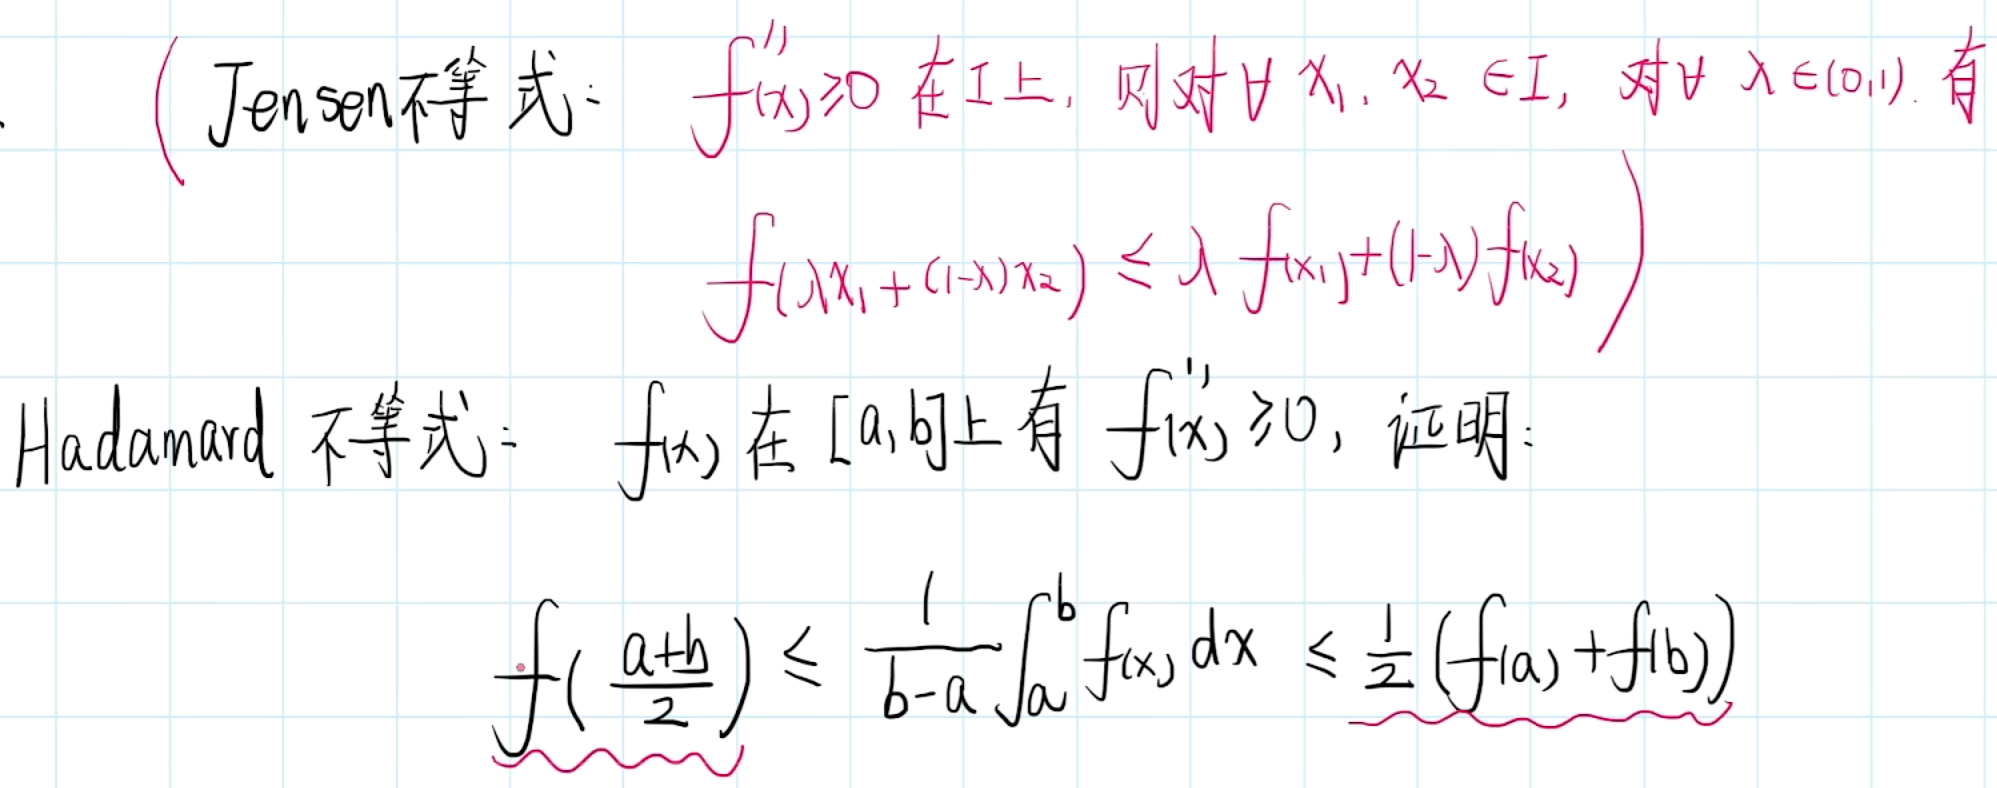 (Jensen不等式: f''(x)≥0 在I上, 则对∀ x₁, x₂ ∈I, 对∀ λ∈(0,1). 有
f(λx₁+(1-λ)x₂) ≤ λ f(x₁)+(1-λ)f(x₂))
Hadamard 不等式: f(x) 在 [a,b]上有 f''(x)≥0, 证明:
f((a+b)/2) ≤ 1/(b-a) ∫ₐᵇ f(x) dx ≤ 1/2 (f(a)+f(b))